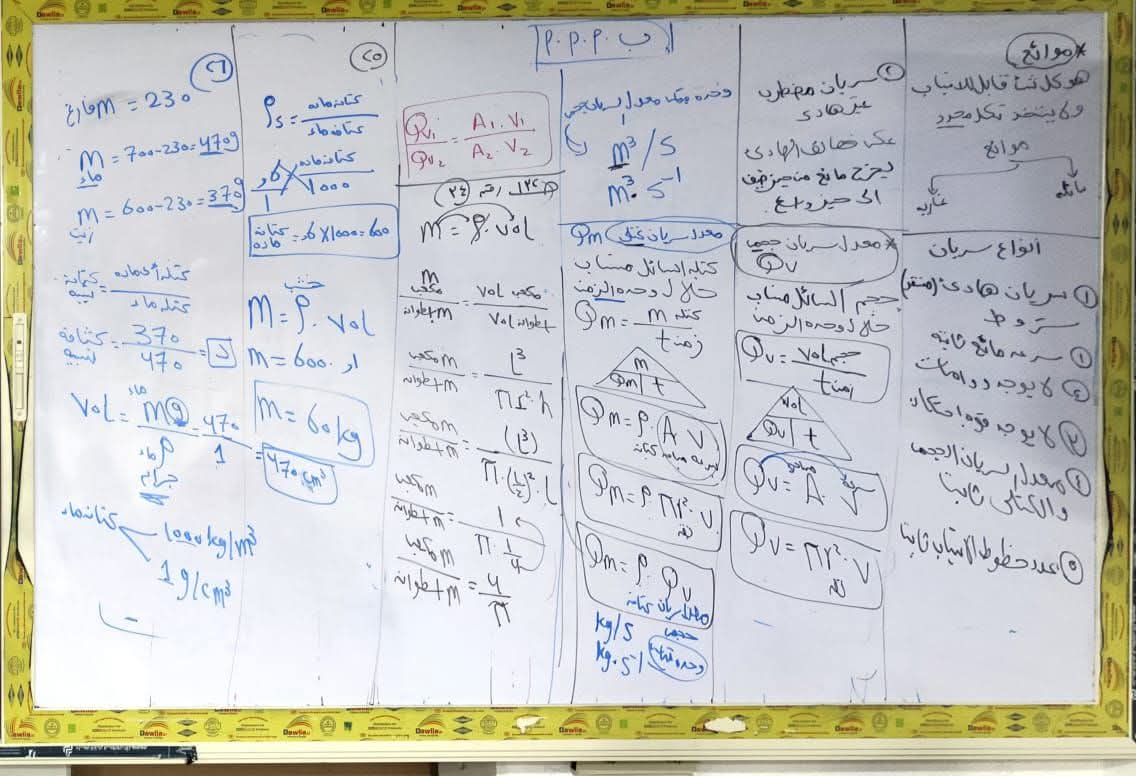 ب . م . م . م
* موائع
هو كل شئ قابل للانسياب
ولا يتخذ شكل محدد
موائع
مائله
غازيه
انواع سريان
① سريان هادئ (مستقر)
شروط
① سرعه مائع ثابته
② لا يوجد دوامات
③ لا يوجد قوه احتكاك
④ معدل السريان الحجمى
والكتلى ثابت
⑤ عدد خطوط الانسياب ثابت
② سريان مضطرب
غير هادئ
عكس خصائص الهادئ
يخرج مائع من حيز ضيق
الى حيز واسع
* معدل سريان حجمى
Qv
حجم السائل منساب
خلال وحده الزمن
Qv = حجم vol / زمن t
vol
Qv | t
Qv = A . V
Qv = πr² . V
وحده معدل السريان حجمى
m³/s
m³. s⁻¹
معدل سريان كتلى Qm
كتله السائل منساب
خلال وحده الزمن
Qm = كتله m / زمن t
m
Qm | t
Qm = ρ . A V
Qm = ρ . πr² . V
Qm = ρ . Qv
kg/s
kg . s⁻¹
Qv₁ / Qv₂ = A₁ . V₁ / A₂ . V₂
رقم ٢٤
m = ρ . vol
m مكعب / m اسطوانة = vol مكعب / vol اسطوانة
m مكعب / m اسطوانة = L³ / πr² . h
m مكعب / m اسطوانة = (L³) / π . (L/2)² . L
m مكعب / m اسطوانة = 1 / π . 1/4
m مكعب / m اسطوانة = 4 / π
٢٥
ρs = كثافه ماده / كثافه ماء
كثافه ماده / 1000
كثافة ماده = 1000 × ٦ر = 600
خشب
m = ρ . vol
m = 600 . ار
m = 60 kg
٢٦
m فارغ = 230
m ماء = 700 - 230 = 470g
m زيت = 600 - 230 = 370g
كثافة نسبيه = كتله ماده / كتله ماء
كثافه نسبيه = 370 / 470
vol = m ماء g / ρ ماء = 470 / 1 = 470 cm³
جرام
كثافه ماء
1000 kg/m³
1 g/cm³